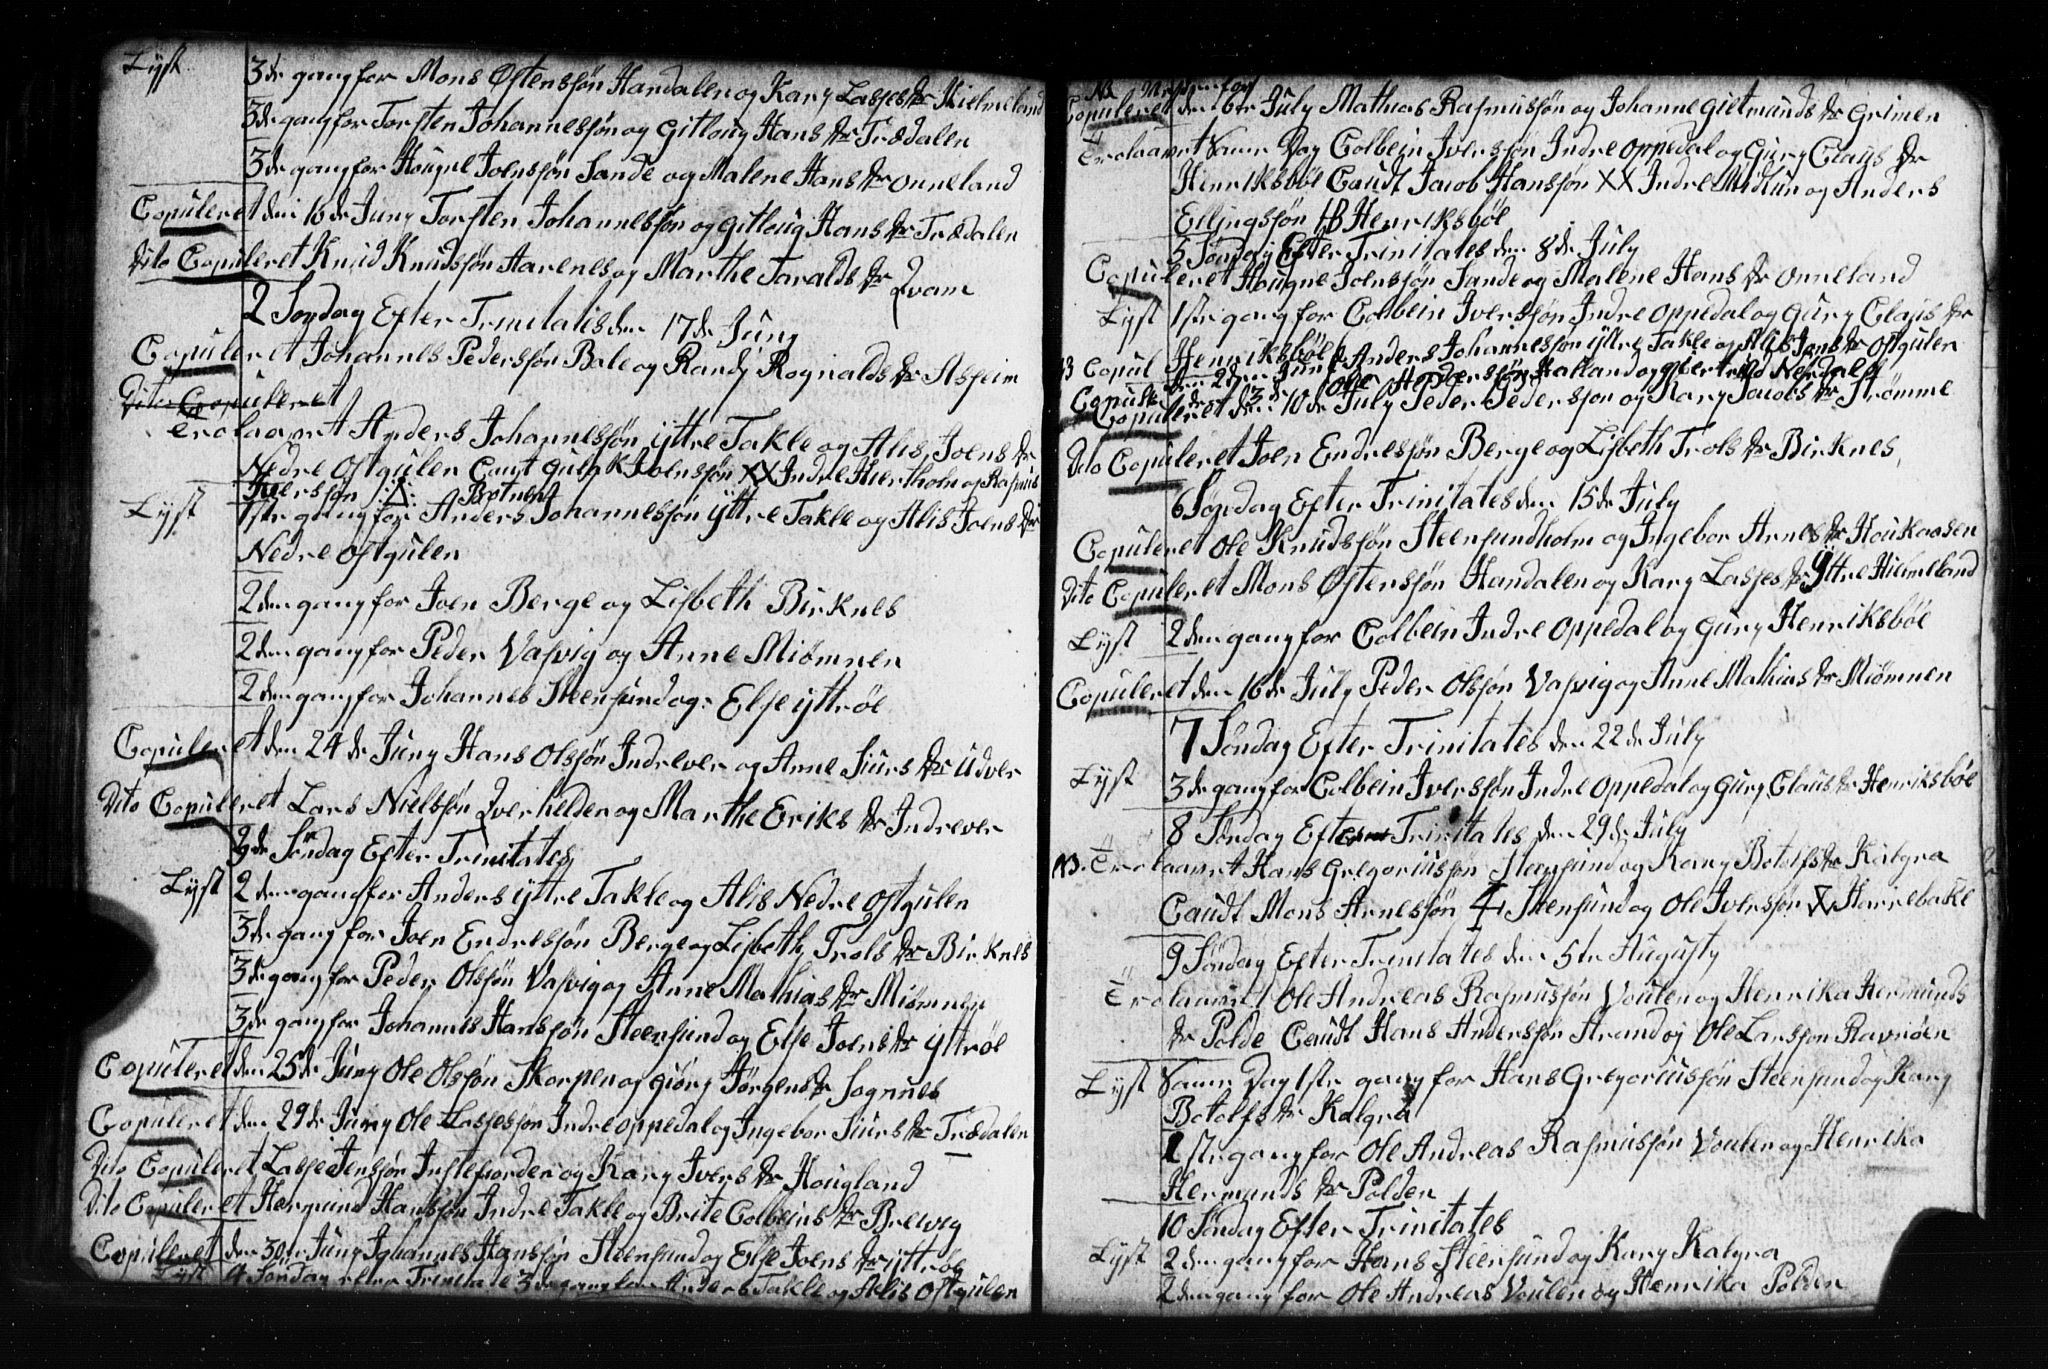 Lyst 3de gang for Mons Østenssøn Handalen og Kary Lasses dr Hielmeland
3de gang for Torsten Johannessøn og Gitloug Hans dr Trædalen
3de gang for Hougne Joenssøn Sande og Malene Hans dr Onneland
Copuleret den 16de Juny Torsten Johannessøn og Gitloug Hans dr Trædalen
Dito Copuleret Knud Knudssøn Aarenes og Marthe Taralds dr Qvam
2 Søndag Efter Trinitatis den 17de Juny
Copuleret Johannes Pederssøn Bale og Randj Rognalds dr Asheim
Dito Copuleret
Trolaavet Anders Johannessøn yttre Takle og Alis Joens dr
Nedre Ostgulen Caut Joenssøn XX Indre Hiertholm og Rasmus
Iverssøn Botnen
Lyst 1ste gang for Anders Johannessøn yttre Takle og Alis Joens dr
Nedre Ostgulen
2den gang for Joen Berge og Lisbeth Birknes
2den gang for Peder Vasvig og Anne Miømnen
2den gang for Johannes Steensund og Else yttrøe
Copuleret den 24de Juny Hans Olssøn Indrever og Anne Siurs dr Udver
Dito Copuleret Lars Nielssøn Qverhelden og Marthe Eriks dr Indrever
3de Søndag Efter Trinitates
Lyst 2den gang for Anders yttre Takle og Alis Nedre Ostgulen
3de gang for Joen Endressøn Berge og Lisbeth Trols dr Birknes
3de gang for Peder Olssøn Vasvig og Anne Mathias dr Miømnen
3de gang for Johannes Hanssøn Steensund og Else Joens dr yttrøe
Copuleret den 25de Juny Ole Olssøn Skorpen og Giørj Jørgens dr Sognnes
Copuleret den 29de Juny Ole Lassessøn Indre Oppedal og Ingebor Siurs dr Trædalen
Dito Copuleret Lasse Jenssøn Instefiorden og Kary Ivers dr Hougland
Dito Copuleret Hermund Hanssøn Indre Takle og Brite Colbeins dr Brevig
Copuleret den 30te Juny Johannes Hanssøn Steensund og Else Joens dr yttrøe
Lyst 4 Søndag efter Trinitate 3de gang for Anders Takle og Alis Ostgulen
Copuleret den 6te July Mathias Rasmussøn og Johanne Gietmunds dr Grimen
Trolaavet Samme Dag Colbein Iverssøn Indre Oppedal og Gury Claus dr
Henriksbøe Caudt Jacob Hanssøn XX Indre Midtun og Anders
Ellingssøn HB Henriksbøe
5 Søndag Efter Trinitates den 8de July
Copuleret Hougne Joenssøn Sande og Malene Hans dr Onneland
Lyst 1ste gang for Colbein Iverssøn Indre Oppedal og Gury Claus dr
Henriksbøe
Copul Anders Johannessøn yttre Takle og Alis Joens dr Ostgulen
Copul Ole Pederssøn Halland og Giertrud Nerdalen
Copuleret den 10de July Peder Pederssøn og Kary Jacobs dr Strømme
Dito Copuleret Joen Endressøn Berge og Lisbeth Trols dr Birknes
6 Søndag Efter Trinitates den 15de July
Copuleret Ole Knudssøn Steensundholm og Ingebor Arnes dr Houkaasen
Dito Copuleret Mons Østenssøn Handalen og Kary Lasses dr Yttre Hielmeland
Lyst 2den gang for Colbein Indre Oppedal og Gury Henriksbøe
Copuleret den 16de July Peder Olssøn Vasvig og Anne Mathias dr Miømnen
7 Søndag Efter Trinitates den 22de July
Lyst 3de gang for Colbein Iverssøn Indre Oppedal og Gury Claus dr Henriksbøe
8 Søndag Efter Trinitates den 29de July
NB. Trolaavet Hans Gregoriussøn Steensund og Kary Botolfs dr Kalgra
Caudt Mons Arnessøn Steensund og Ole Iverssøn X Hairebakke
9 Søndag Efter Trinitates den 5te Augusty
Trolaavet Ole Andreas Rasmussøn Voulen og Henrika Hermunds
dr Polde Caudt Hans Anderssøn Strand og Ole Larssøn Ravnøen
Lyst Samme Dag 1ste gang for Hans Gregoriussøn Steensund og Kary
Botolfs dr Kalgra
1ste gang for Ole Andreas Rasmussøn Voulen og Henrika
Hermunds dr Polden
10 Søndag Efter Trinitates
Lyst 2den gang for Hans Steensund og Kary Kalgra
2den gang for Ole Andreas Voulen og Henrika Polden